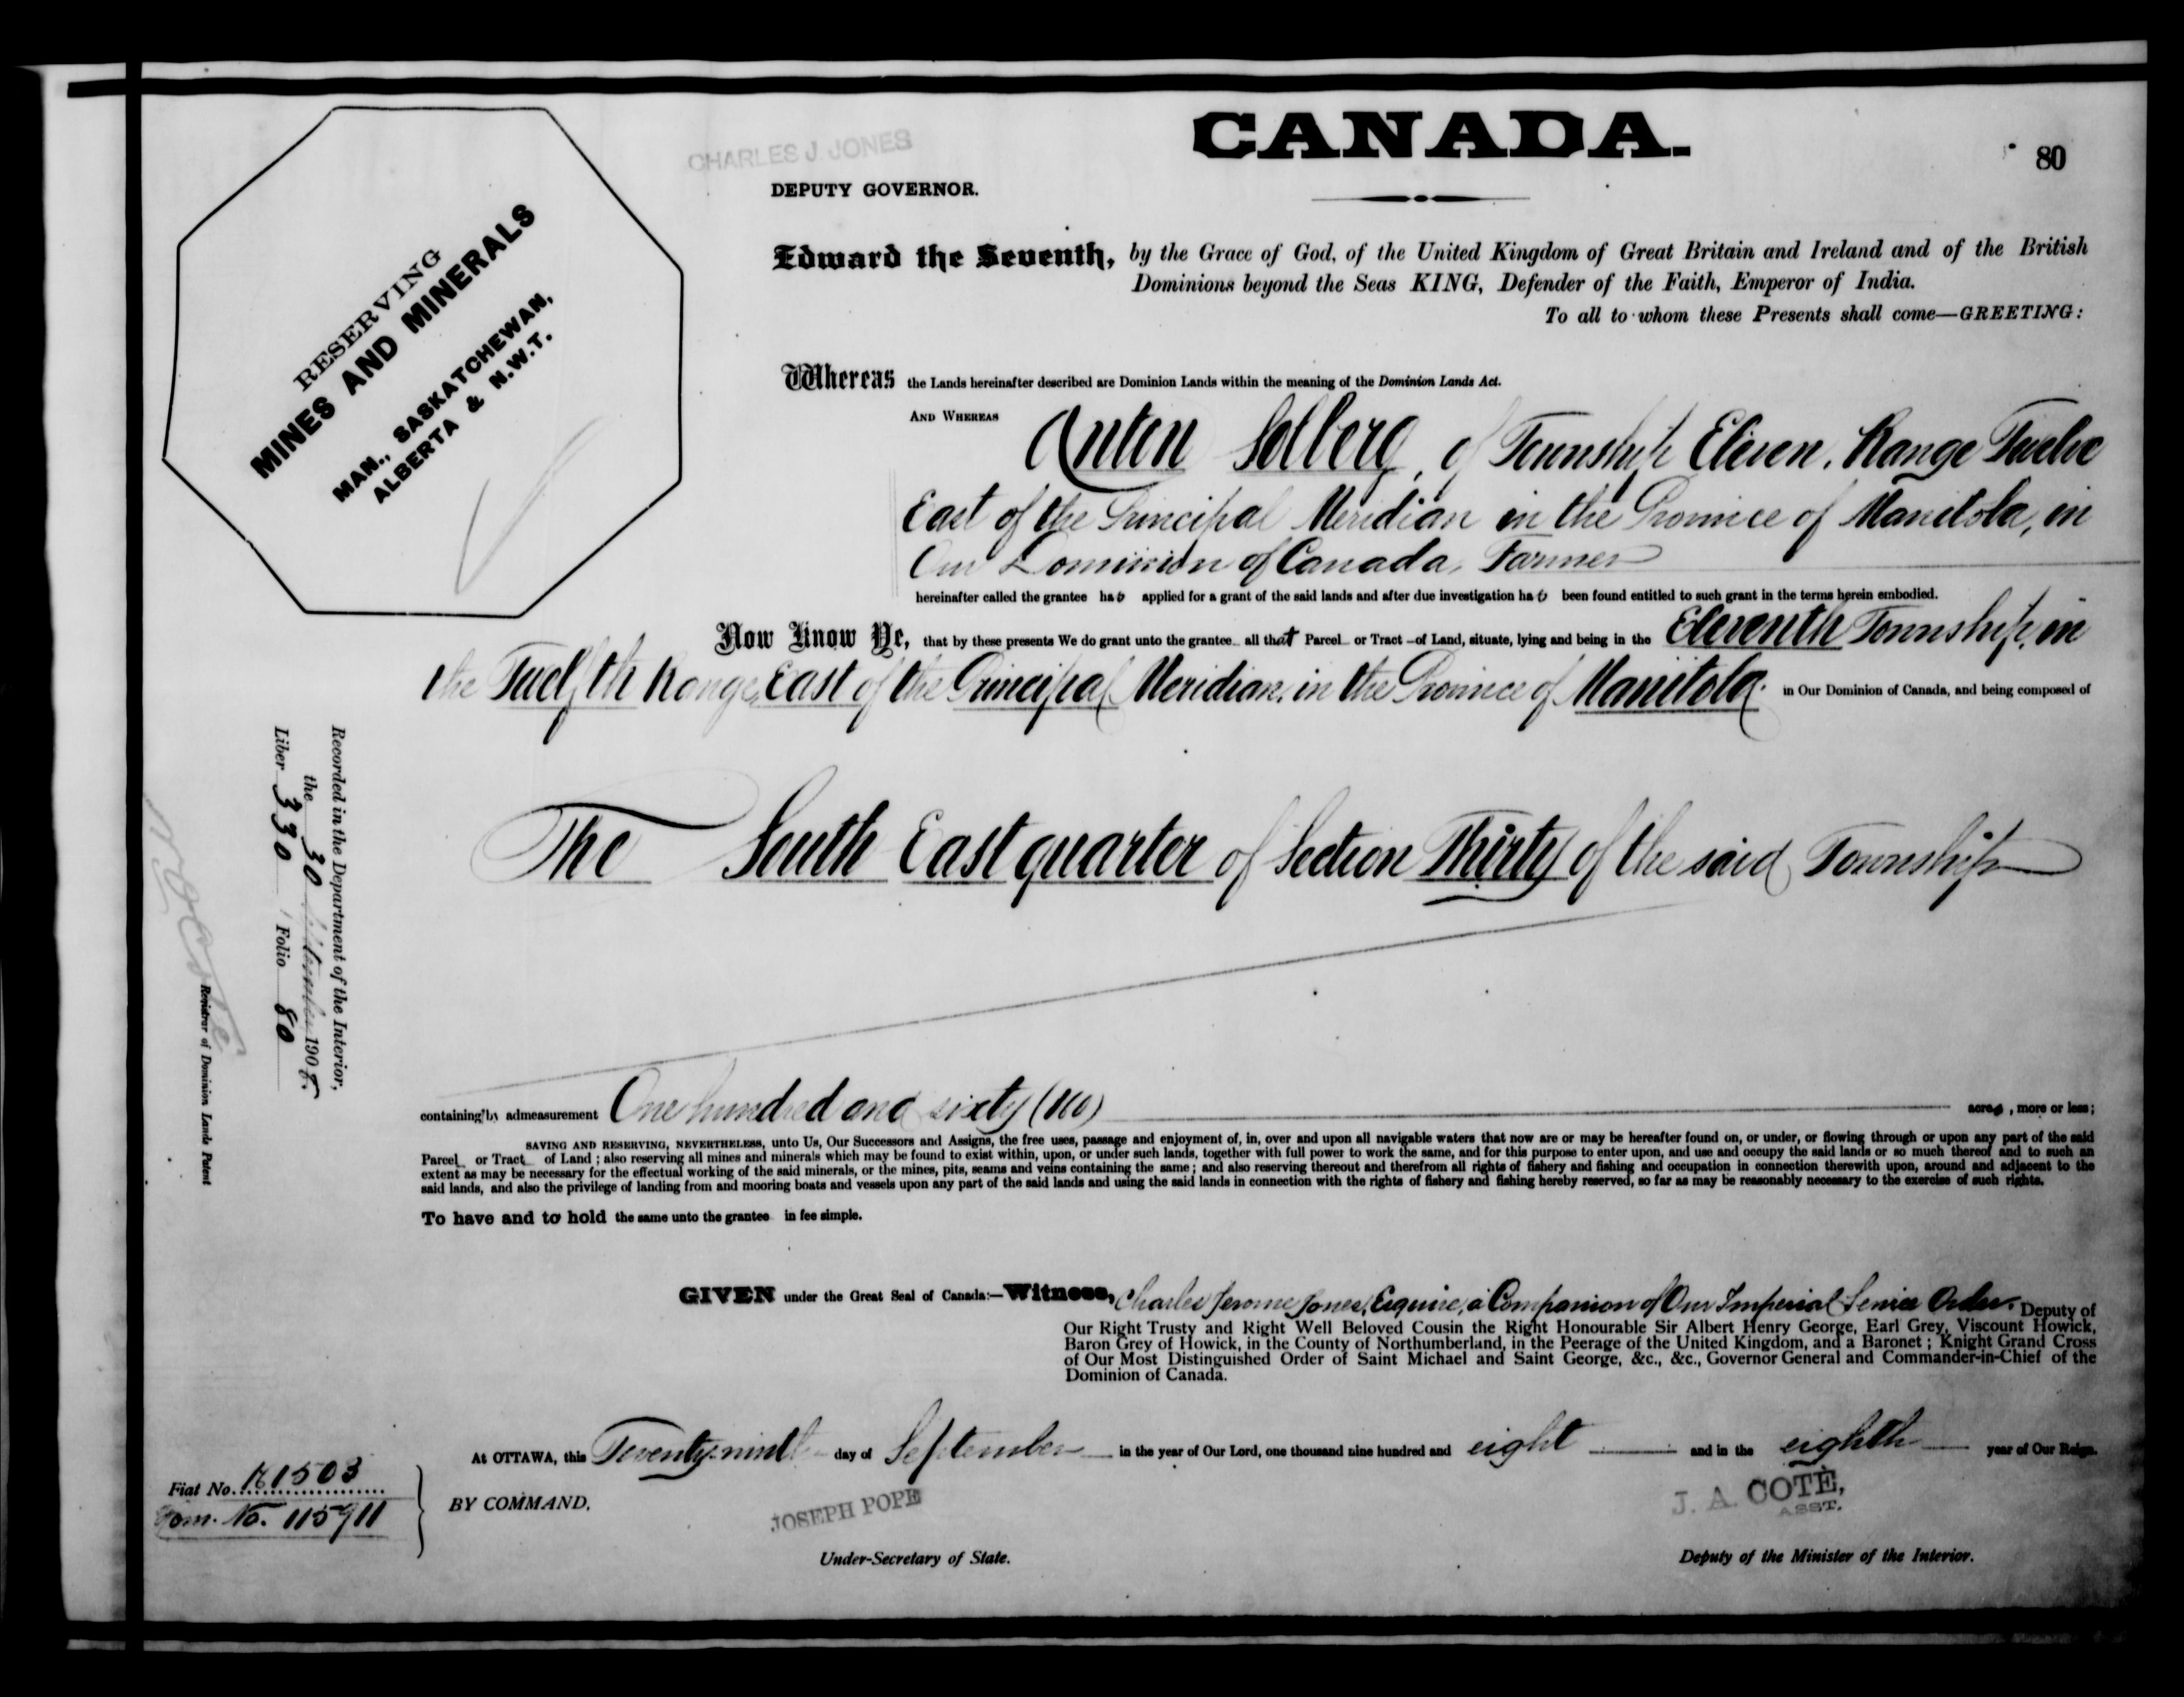 CANADA.
80
CHARLES J JONES
DEPUTY GOVERNOR.
RESERVING
MINES AND MINERALS
MAN., SASKATCHEWAN,
ALBERTA & N.W.T.
Edward the Seventh, by the Grace of God, of the United Kingdom of Great Britain and Ireland and of the British
Dominions beyond the Seas KING, Defender of the Faith, Emperor of India.
To all to whom these Presents shall come—GREETING:
Whereas the Lands hereinafter described are Dominion Lands within the meaning of the Dominion Lands Act.
AND WHEREAS Anton Solberg, of Township Eleven, Range Twelve
East of the Principal Meridian in the Province of Manitoba, in
Our Dominion of Canada, Farmer
hereinafter called the grantee has applied for a grant of the said lands and after due investigation has been found entitled to such grant in the terms herein embodied.
Now Know Ye, that by these presents We do grant unto the grantee all that Parcel or Tract of Land, situate, lying and being in the Eleventh Township, in
the Twelfth Range, East of the Principal Meridian, in the Province of Manitoba in Our Dominion of Canada, and being composed of
The South East quarter of Section Thirty of the said Township
Recorded in the Department of the Interior,
the 30 September 1908.
Liber 330 Folio 80
Registrar of Dominion Lands Patent
containing by admeasurement One hundred and sixty (160) acres, more or less;
SAVING AND RESERVING, NEVERTHELESS, unto Us, Our Successors and Assigns, the free uses, passage and enjoyment of, in, over and upon all navigable waters that now are or may be hereafter found on, or under, or flowing through or upon any part of the said
Parcel or Tract of Land; also reserving all mines and minerals which may be found to exist within, upon, or under such lands, together with full power to work the same, and for this purpose to enter upon, and use and occupy the said lands or so much thereof and to such an
extent as may be necessary for the effectual working of the said minerals, or the mines, pits, seams and veins containing the same; and also reserving thereout and therefrom all rights of fishery and fishing and occupation in connection therewith upon, around and adjacent to the
said lands, and also the privilege of landing from and mooring boats and vessels upon any part of the said lands and using the said lands in connection with the rights of fishery and fishing hereby reserved, so far as may be reasonably necessary to the exercise of such rights.
To have and to hold the same unto the grantee in fee simple.
GIVEN under the Great Seal of Canada:—Witness, Charles Jerome Jones, Esquire, a Companion of Our Imperial Service Order. Deputy of
Our Right Trusty and Right Well Beloved Cousin the Right Honourable Sir Albert Henry George, Earl Grey, Viscount Howick,
Baron Grey of Howick, in the County of Northumberland, in the Peerage of the United Kingdom, and a Baronet; Knight Grand Cross
of Our Most Distinguished Order of Saint Michael and Saint George, &c., &c., Governor General and Commander-in-Chief of the
Dominion of Canada.
At OTTAWA, this Twenty-ninth day of September in the year of Our Lord, one thousand nine hundred and eight and in the eighth year of Our Reign.
Fiat No. 181503
Hom. No. 115911
BY COMMAND,
JOSEPH POPE
Under-Secretary of State.
J. A. COTÉ,
ASST.
Deputy of the Minister of the Interior.